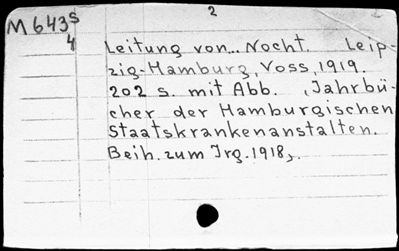 2
M 643s
4
Leitung von... Nocht. Leip-
zig-Hamburg, Voss, 1919.
202 s. mit Abb. , Jahrbü-
cher der Hamburgischen
Staatskrankenanstalten.
Beih. zum Jrg. 1918,.